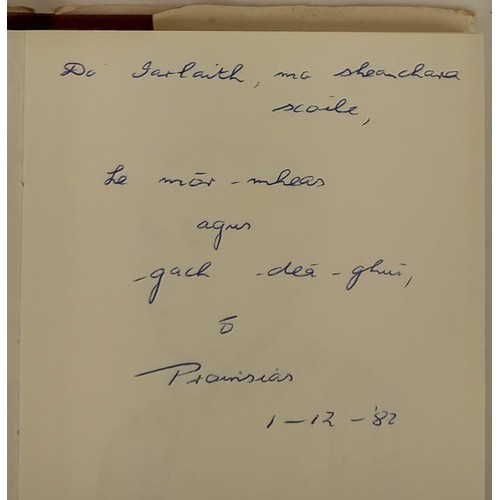 Do Iarlaith, mo sheanchara
scoile,
Le mór-mheas
agus
gach dea-ghuí,
ó
Proinsias
1-12-'82